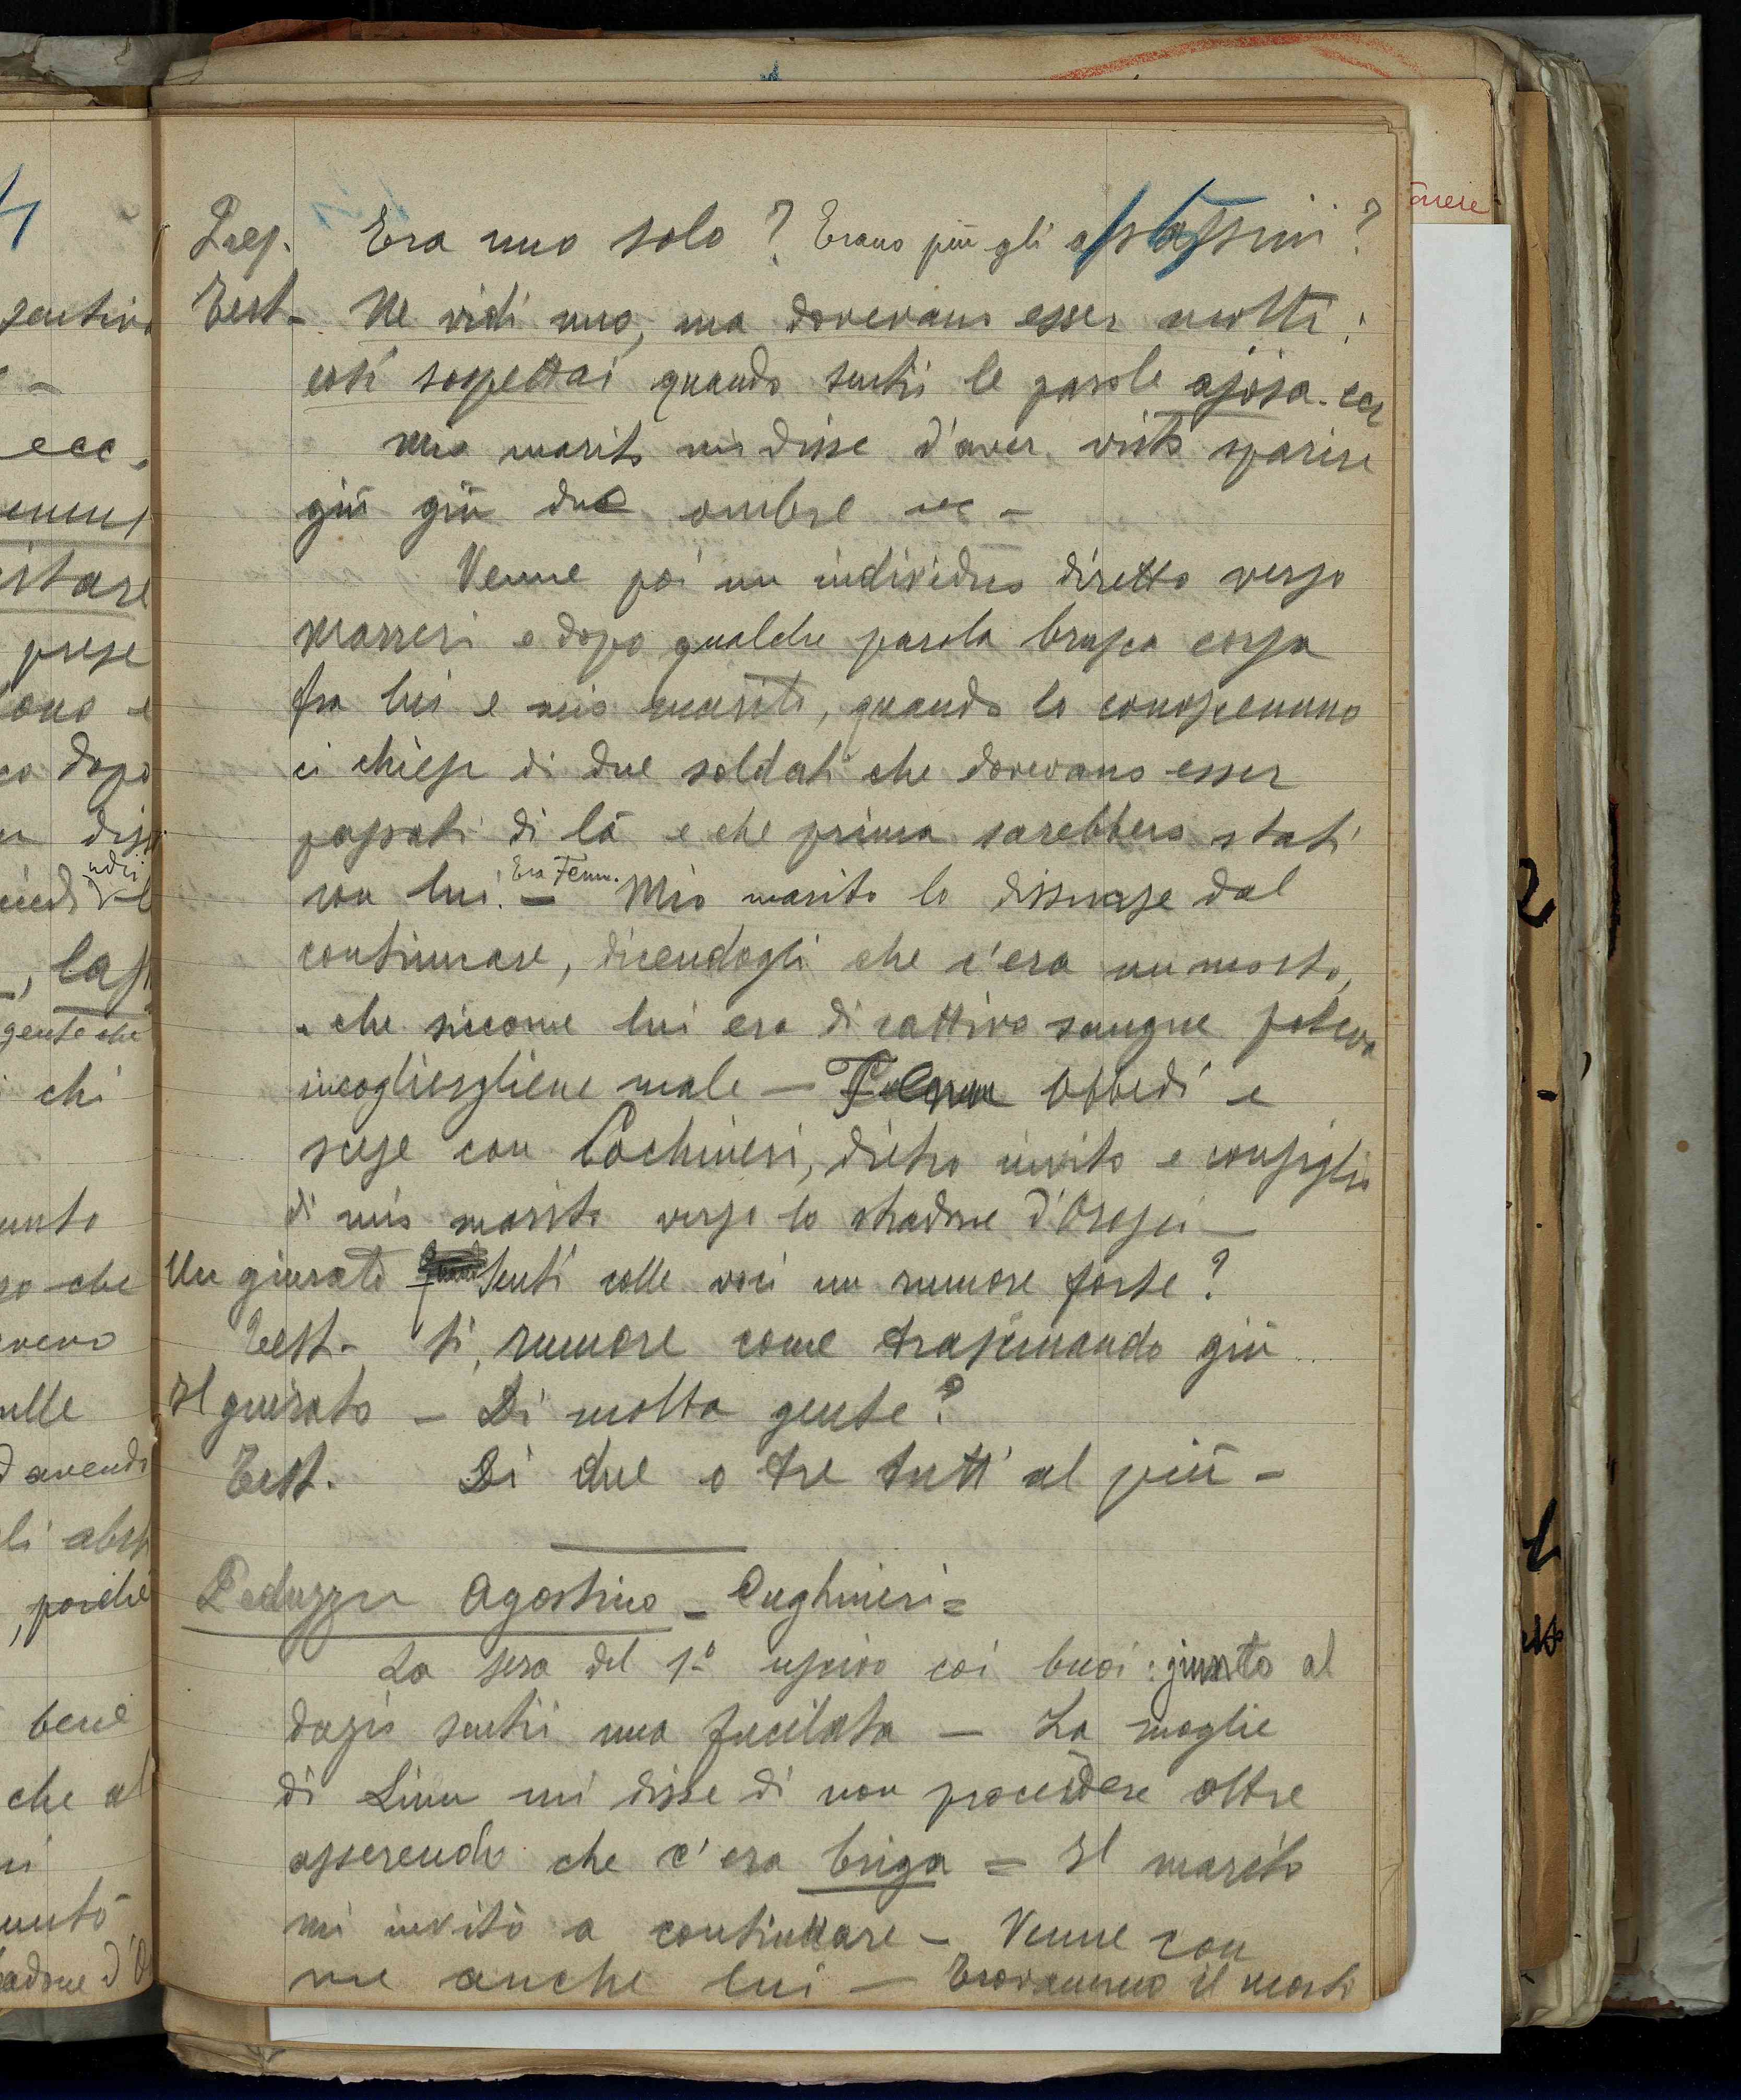 Pres. Era uno solo? Erano più gli assassini?
Test. Ne vidi uno, ma dovevano esser molti:
così sospettai quando sentii le parole ajosa. ecc
Mio marito mi disse d'aver visto sparire
giù giù due ombre ecc -
Venne poi un individuo diretto verso
Marreri e dopo qualche parola brusca corsa
fra lui e mio marito, quando lo conoscemmo
ci chiese di due soldati che dovevano esser
passati di là e che prima sarebbero stati
Era Fenu.
con lui. - Mio marito lo dissuase dal
continuare, dicendogli che c'era un morto,
e che siccome lui era di cattivo sangue poteva
incogliergliene male - Obbedì e
scese con Cochineri, dietro invito e consiglio
di mio marito verso lo stradone d'Orosei -
Un giurato Sentì colle voci un rumore forte?
Test. Sì, rumore come trascinando giù ..
Il giurato - Di molta gente?
Test. Di due o tre tutt'al più -
Pedduzza Agostino - Cughineri =
La sera del 1º uscivo coi buoi: giunto al
dazio sentii una fucilata - La moglie
di Linu mi disse di non procedere oltre
asserendo che c'era briga = Il marito
mi invitò a continuare - Venne con
me anche lui - Trovammo il morto